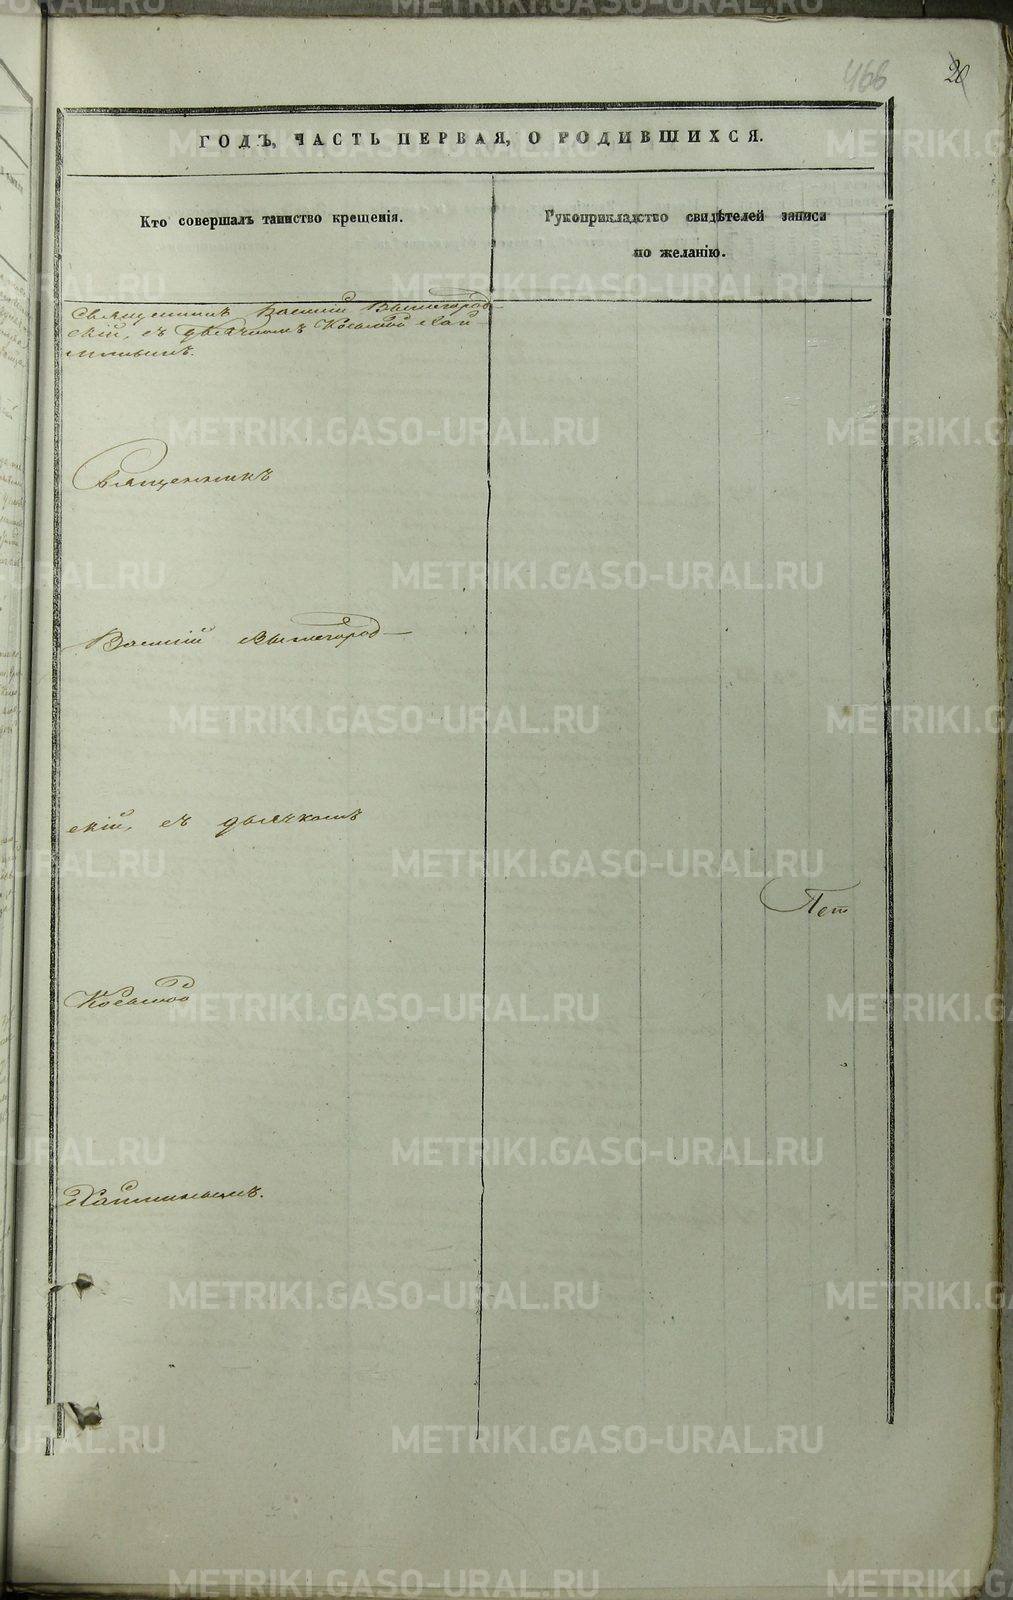 466
20
ГОДЪ, ЧАСТЬ ПЕРВАЯ, О РОДИВШИХСЯ.
Кто совершалъ таинство крещенія.
Рукоприкладство свидѣтелей записи
по желанію.
Священникъ Василій Вышегород-
скій, съ дьячкомъ Косьмою Хай-
миновымъ.
Священникъ
Василій Вышегород-
скій, съ дьячкомъ
Пет
Косьмою
METRIKI.GASO-URAL.RU